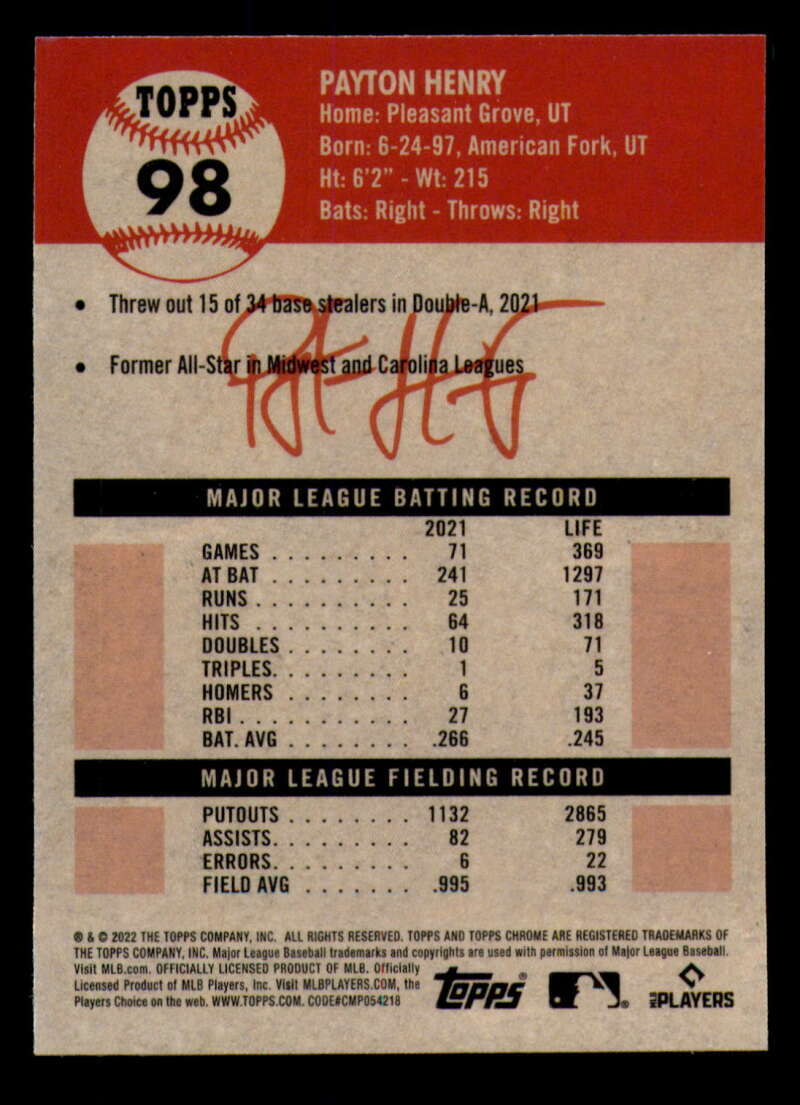 TOPPS
98
PAYTON HENRY
Home: Pleasant Grove, UT
Born: 6-24-97, American Fork, UT
Ht: 6'2" - Wt: 215
Bats: Right - Throws: Right
• Threw out 15 of 34 base stealers in Double-A, 2021
• Former All-Star in Midwest and Carolina Leagues
MAJOR LEAGUE BATTING RECORD
2021 LIFE
GAMES . . . . . . . . . 71 369
AT BAT . . . . . . . . . 241 1297
RUNS . . . . . . . . . . 25 171
HITS . . . . . . . . . . 64 318
DOUBLES . . . . . . . . 10 71
TRIPLES. . . . . . . . . 1 5
HOMERS . . . . . . . . 6 37
RBI . . . . . . . . . . . 27 193
BAT. AVG . . . . . . . . .266 .245
MAJOR LEAGUE FIELDING RECORD
PUTOUTS . . . . . . . . 1132 2865
ASSISTS. . . . . . . . . 82 279
ERRORS. . . . . . . . . 6 22
FIELD AVG . . . . . . . .995 .993
® & © 2022 THE TOPPS COMPANY, INC. ALL RIGHTS RESERVED. TOPPS AND TOPPS CHROME ARE REGISTERED TRADEMARKS OF
THE TOPPS COMPANY, INC. Major League Baseball trademarks and copyrights are used with permission of Major League Baseball.
Visit MLB.com. OFFICIALLY LICENSED PRODUCT OF MLB. Officially
Licensed Product of MLB Players, Inc. Visit MLBPLAYERS.COM, the
Players Choice on the web. WWW.TOPPS.COM. CODE#CMP054218
Topps®
MLB PLAYERS